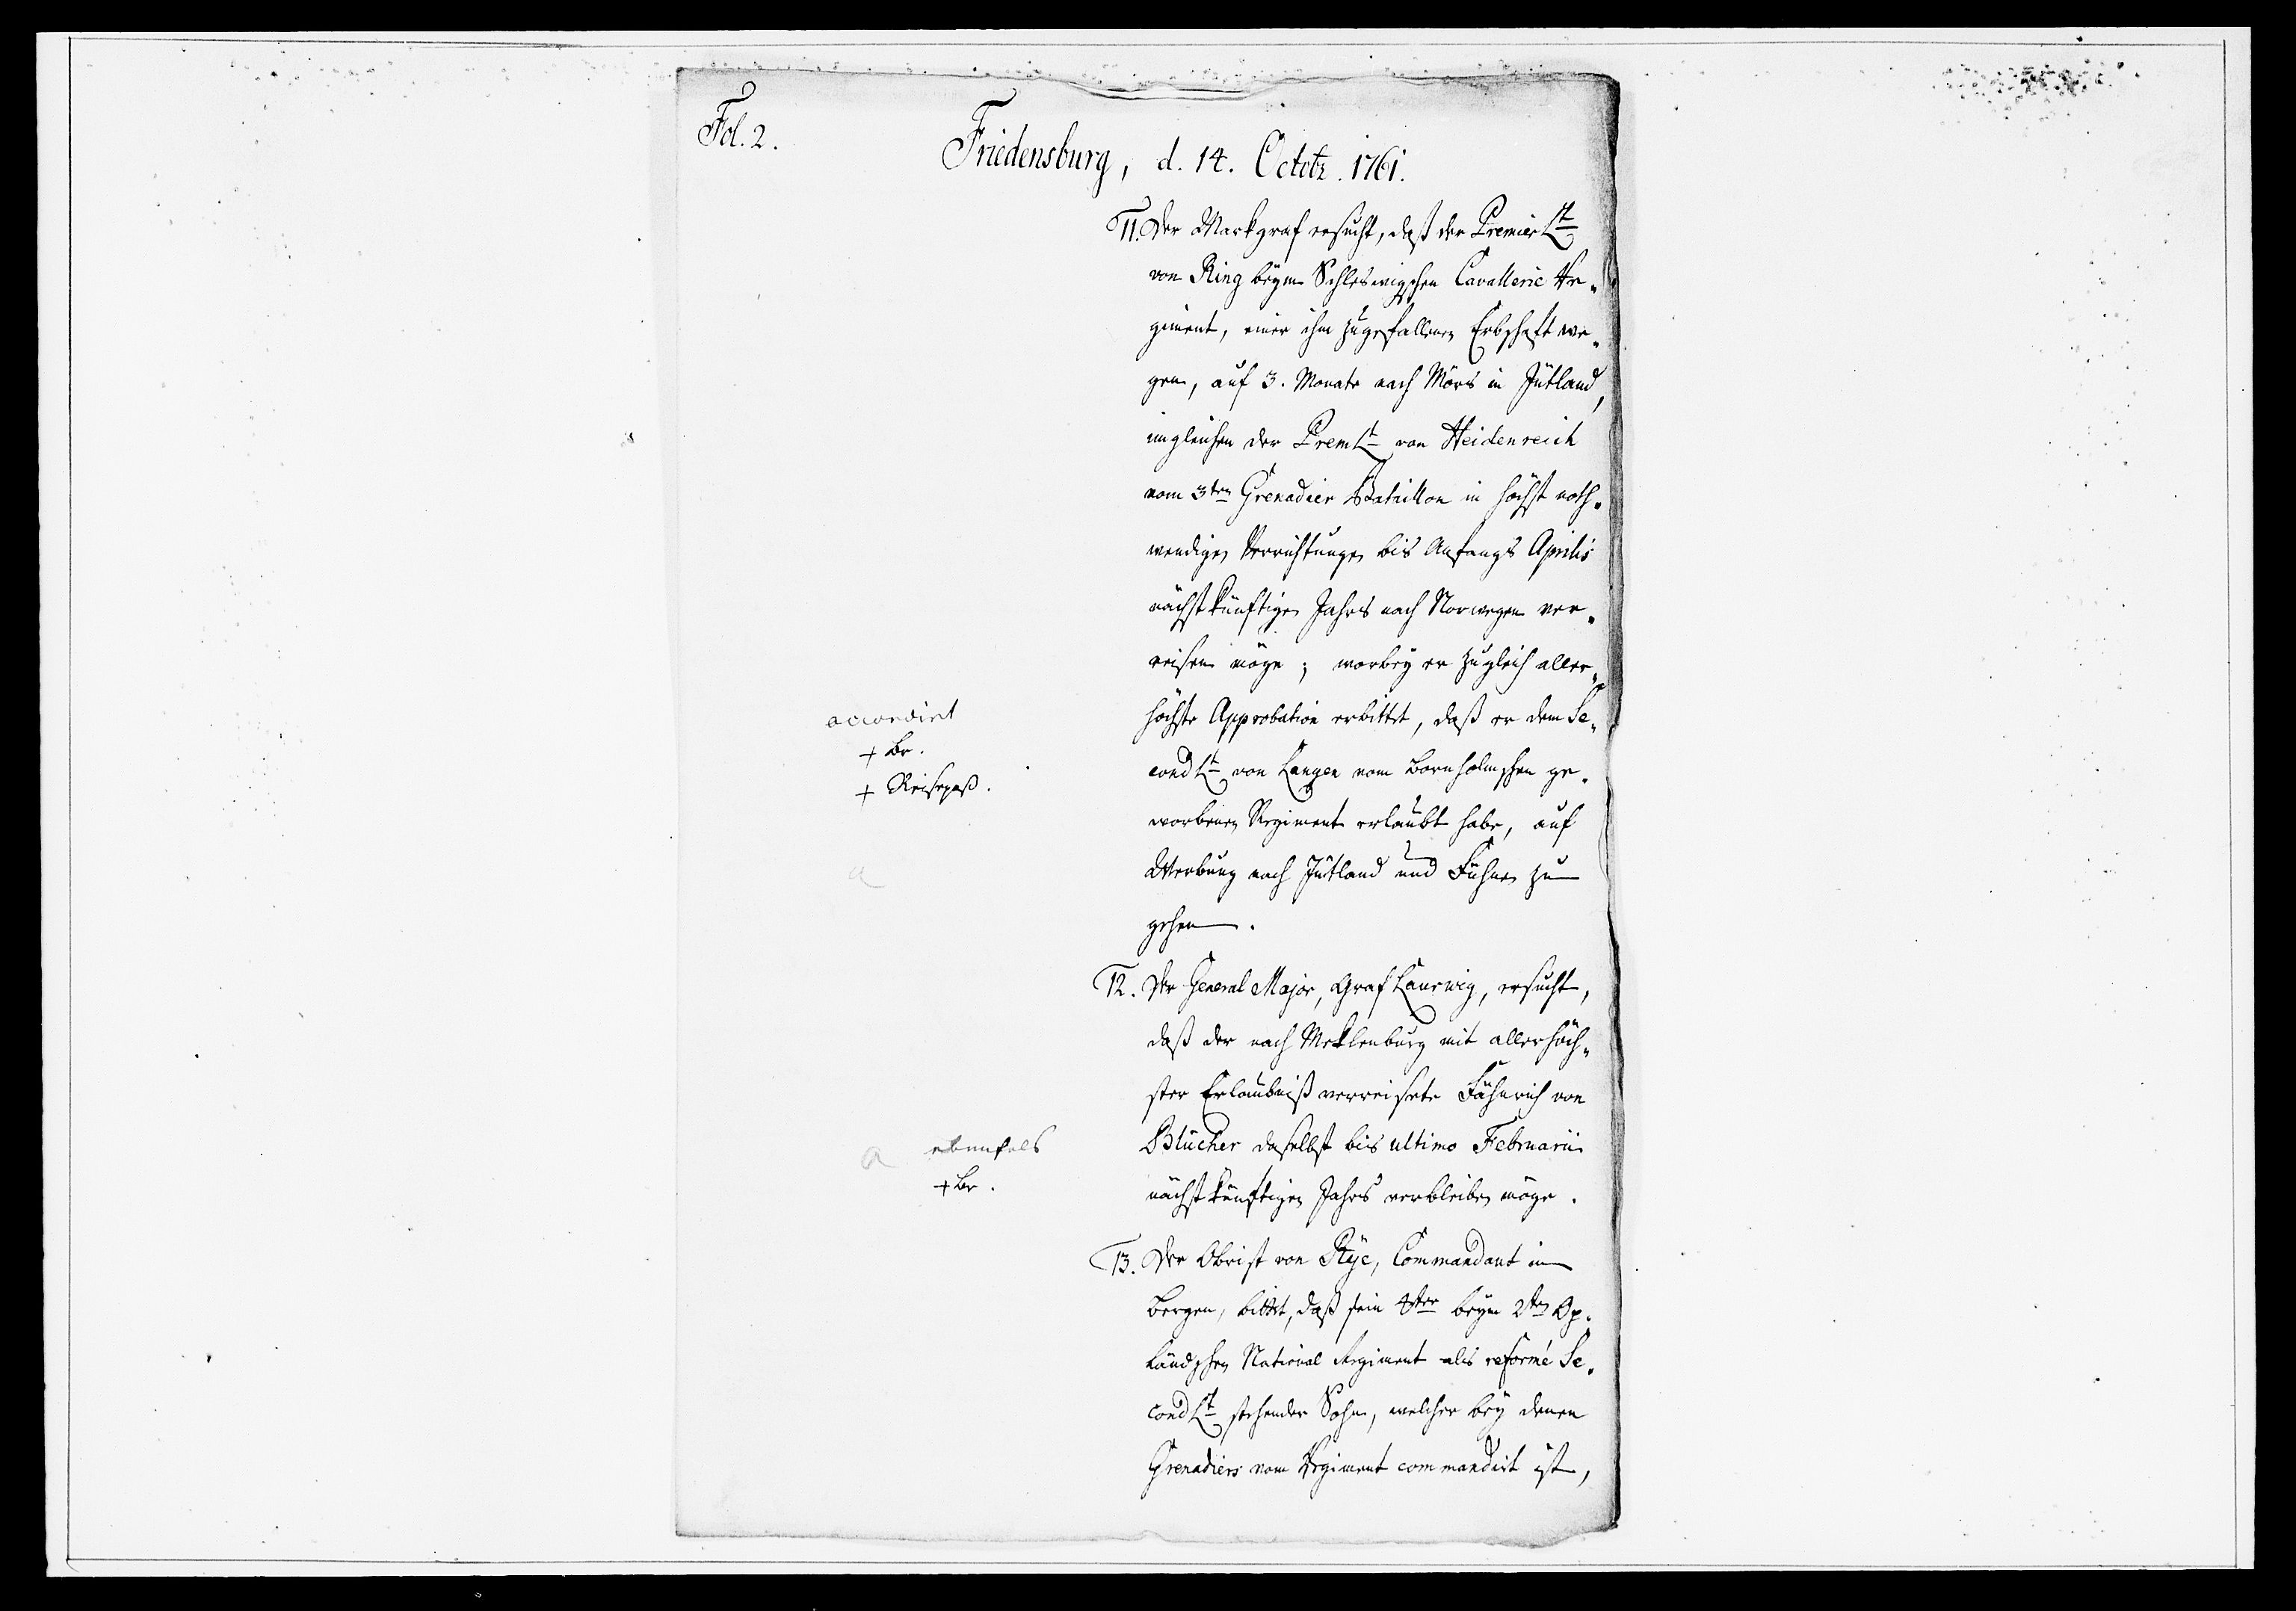 Fol. 2.
Friedensburg, d. 14. Octobr. 1761.
11. Der Markgraf ersucht, daß der Premier Lt
von Ring beym Schleswigschen Cavallerie Re-
giment, einer ihm zugefallenen Erbschaft we-
gen, auf 3. Monate nach Mörs in Jütland,
imgleichen der Prem Lt von Heidenreich
vom 3ten Grenadier Bataillon in höchst noth-
wendigen Verrichtungen bis Anfangs Aprilis
nächstkünftigen Jahrs nach Norwegen ver-
reisen möge; worbey er zugleich aller-
höchste Approbation erbittet, daß er dem Se-
cond Lt von Langen vom Bornholmschen ge-
worbenen Regiment erlaubt habe, auf
Werbung nach Jütland und Fühnen zu
gehen.
accordirt
+ Br.
+ Reisepaß.
a
12. Der General Major, Graf Laurwig, ersucht,
daß der nach Meklenburg mit allerhöch-
ster Erlaubniß verreisete Fähnrich von
Blücher daselbst bis ultimo Februarii
nächstkünftigen Jahrs verbleiben möge.
a ebenfals
+ Br.
13. Der Obrist von Rÿe, Commandant in
Bergen, bittet, daß sein 4ter beym 2ten Op-
ländschen National Regiment als reformé Se-
cond Lt stehender Sohn, welcher bey denen
Grenadiers vom Regiment commandirt ist,